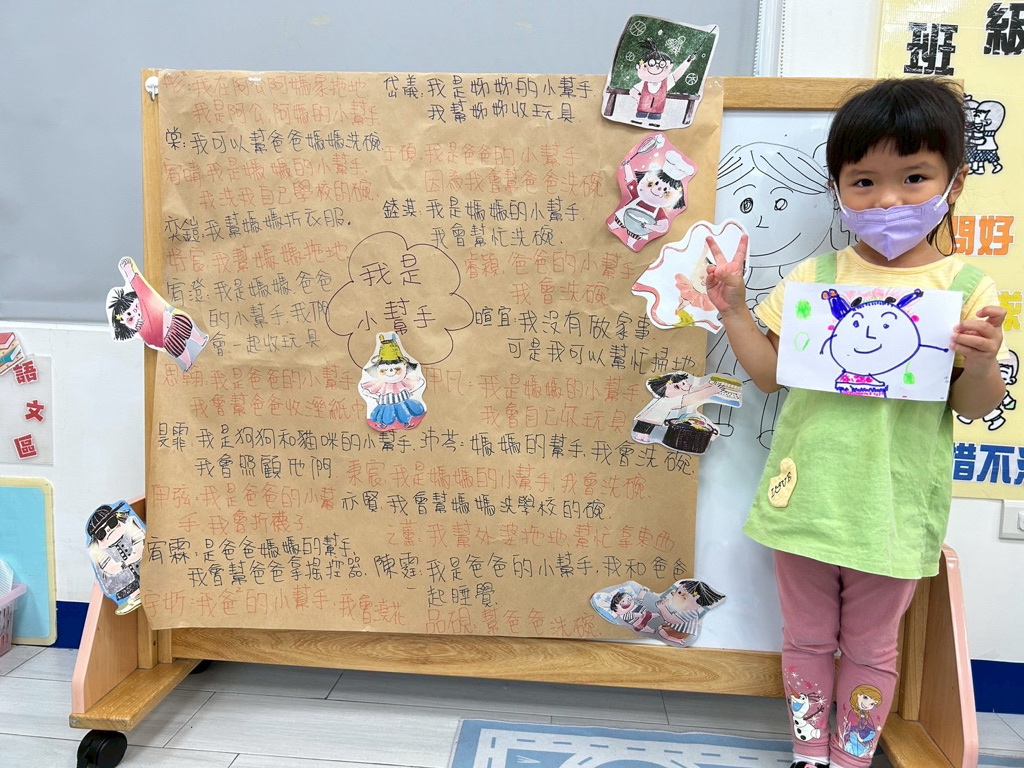 我在阿公阿媽家拖地
我是阿公、阿媽的小幫手
棠:我可以幫爸爸媽媽洗碗.
我是媽媽的小幫手
我洗我自己學校的碗.
奕鎧:我幫媽媽折衣服.
我幫媽媽拖地.
宥澄:我是媽媽、爸爸
的小幫手,我們
會一起收玩具
我是爸爸的小幫手
我會幫爸爸收溼紙巾
旻霏:我是狗狗和貓咪的小幫手.
我會照顧他們.
甲弦:我是爸爸的小幫
手,我會折襪子
宥霖:是爸爸媽媽的幫手.
我會幫爸爸拿搖控器.
我爸爸的小幫手,我會澆花
我是
小幫手
岱義:我是姊姊的小幫手
我幫姊姊收玩具
我是爸爸的小幫手
因為我會幫爸爸洗碗
我是媽媽的小幫手.
我會幫忙洗碗.
睿穎:爸爸的小幫手
我會洗碗
暄宜:我沒有做家事
可是我可以幫忙掃地.
我是媽媽的小幫手
我會自己收玩具
沛芩:媽媽的幫手,我會洗碗.
秉宸:我是媽媽的小幫手,我會洗碗.
亦賢:我會幫媽媽洗學校的碗.
我幫外婆拖地,幫忙拿東西
陳霆:我是爸爸的小幫手,我和爸爸
一起睡覺
幫爸爸洗碗
語
文
區
班
級
問好
錯不